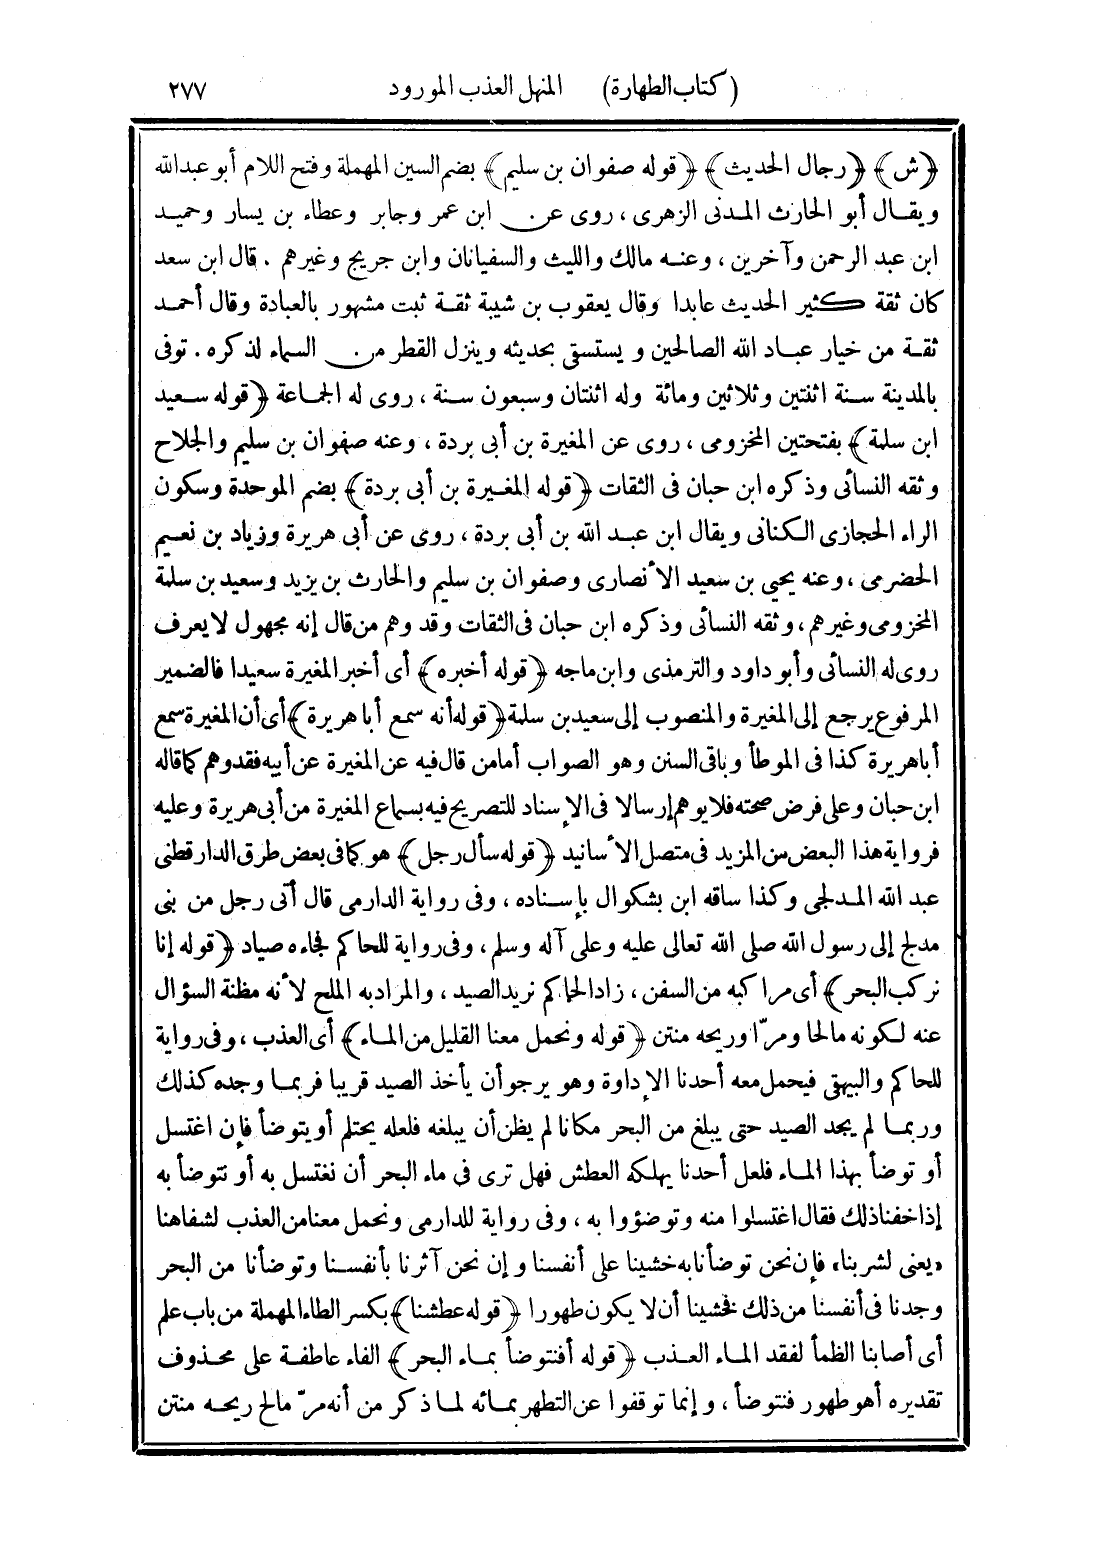 (كتاب الطهارة) المنهل العذب المورود ٢٧٧
﴿ش﴾ ﴿رجال الحديث﴾ ﴿قوله صفوان بن سليم﴾ بضم السين المهملة وفتح اللام أبو عبد الله
ويقال أبو الحارث المدنى الزهرى ، روى عن ابن عمر وجابر وعطاء بن يسار وحميد
ابن عبد الرحمن وآخرين ، وعنه مالك والليث والسفيانان وابن جريج وغيرهم . قال ابن سعد
كان ثقة كثير الحديث عابدا وقال يعقوب بن شيبة ثقة ثبت مشهور بالعبادة وقال أحمد
ثقة من خيار عباد الله الصالحين ويستسقى بحديثه وينزل القطر من السماء لذكره . توفى
بالمدينة سنة اثنتين وثلاثين ومائة وله اثنتان وسبعون سنة ، روى له الجماعة ﴿قوله سعيد
ابن سلمة﴾ بفتحتين المخزومى ، روى عن المغيرة بن أبى بردة ، وعنه صفوان بن سليم والجلاح
وثقه النسائى وذكره ابن حبان فى الثقات ﴿قوله المغيرة بن أبى بردة﴾ بضم الموحدة وسكون
الراء الحجازى الكنانى ويقال ابن عبد الله بن أبى بردة ، روى عن أبى هريرة وزياد بن نعيم
الحضرمى ، وعنه يحيى بن سعيد الأنصارى وصفوان بن سليم والحارث بن يزيد وسعيد بن سلمة
المخزومى وغيرهم ، وثقه النسائى وذكره ابن حبان فى الثقات وقد وهم من قال إنه مجهول لا يعرف
روى له النسائى وأبو داود والترمذى وابن ماجه ﴿قوله أخبره﴾ أى أخبر المغيرة سعيدا فالضمير
المرفوع يرجع إلى المغيرة والمنصوب إلى سعيد بن سلمة ﴿قوله أنه سمع أبا هريرة﴾ أى أن المغيرة سمع
أبا هريرة كذا فى الموطأ وباقى السنن وهو الصواب أما من قال فيه عن المغيرة عن أبيه فقد وهم كما قاله
ابن حبان وعلى فرض صحته فلا يوهم إرسالا فى الإسناد للتصريح فيه بسماع المغيرة من أبى هريرة وعليه
فرواية هذا البعض من المزيد فى متصل الأسانيد ﴿قوله سأل رجل﴾ هو كما فى بعض طرق الدارقطنى
عبد الله المدلجى وكذا ساقه ابن بشكوال بإسناده ، وفى رواية الدارمى قال أتى رجل من بنى
مدلج إلى رسول الله صلى الله تعالى عليه وعلى آله وسلم ، وفى رواية للحاكم فجاءه صياد ﴿قوله إنا
نركب البحر﴾ أى مراكبه من السفن ، زاد الحاكم نريد الصيد ، والمراد به الملح لأنه مظنة السؤال
عنه لكونه مالحا ومرّا وريحه منتن ﴿قوله ونحمل معنا القليل من الماء﴾ أى العذب ، وفى رواية
للحاكم والبيهقى فيحمل معه أحدنا الإداوة وهو يرجو أن يأخذ الصيد قريبا فربما وجده كذلك
وربما لم يجد الصيد حتى يبلغ من البحر مكانا لم يظن أن يبلغه فلعله يحتلم أو يتوضأ فإن اغتسل
أو توضأ بهذا الماء فلعل أحدنا يهلكه العطش فهل ترى فى ماء البحر أن نغتسل به أو نتوضأ به
إذا خفنا ذلك فقال اغتسلوا منه وتوضؤوا به ، وفى رواية للدارمى ونحمل معنا من العذب لشفاهنا
«يعنى لشربنا» فإن نحن توضأنا به خشينا على أنفسنا وإن نحن آثرنا بأنفسنا وتوضأنا من البحر
وجدنا فى أنفسنا من ذلك فخشينا أن لا يكون طهورا ﴿قوله عطشنا﴾ بكسر الطاء المهملة من باب علم
أى أصابنا الظمأ لفقد الماء العذب ﴿قوله أفنتوضأ بماء البحر﴾ الفاء عاطفة على محذوف
تقديره أهو طهور فنتوضأ ، وإنما توقفوا عن التطهر بمائه لما ذكر من أنه مرّ مالح ريحه منتن